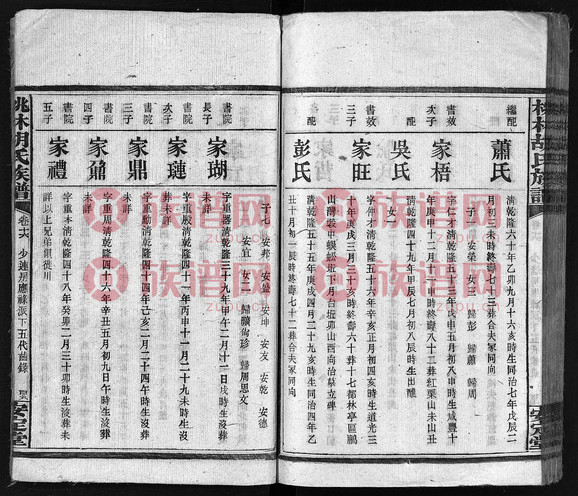 桃林胡氏族譜
繼配
蕭氏
清乾隆六十年乙卯九月十六亥時生同治七年戊辰二
月初三未時終壽七十四葬合夫家同向
子一 安榮 女三 歸 蕭 歸周
書效
次子
家梧
字仁才清乾隆五十三年戊申五月初八申時生咸豐十
年庚申十二月十一申時終壽七十三葬紅栗山未山丑
配
吳氏
清乾隆四十九年甲辰七月初八辰時生出醮
女一
書效
三子
家旺
字仲才清乾隆五十六年辛亥正月初六亥時生道光三
十年庚戌三月三十亥時終壽六十葬十七都林亭區鵬
山灣
配
彭氏
清乾隆五十五年庚戌四月二十九亥時生同治四年乙
丑十月初一辰時終壽七十六葬合夫家同向
子七 安邦 安坤 安友 安乾 安德
安宜 女二 歸 尚珍 歸周思文
書院
長子
家瑚
字重器清乾隆三十九年甲午二月十一日戌時生沒葬
未詳
書院
次子
家璉
字重殷清乾隆四十一年丙申十一月二十九未時生沒
葬未詳
書院
三子
家鼎
字重勛清乾隆四十四年己亥二月二十四午時生沒葬
未詳
書院
四子
家鼐
字重周清乾隆四十六年辛丑五月初九日午時生沒葬
未詳
書院
五子
家禮
字重本清乾隆四十八年癸卯二月三十卯時生沒葬未
詳以上兄弟俱徙川
桃林胡氏族譜
卷十六
少連房應祿派下五代齒錄
安定堂
族谱网